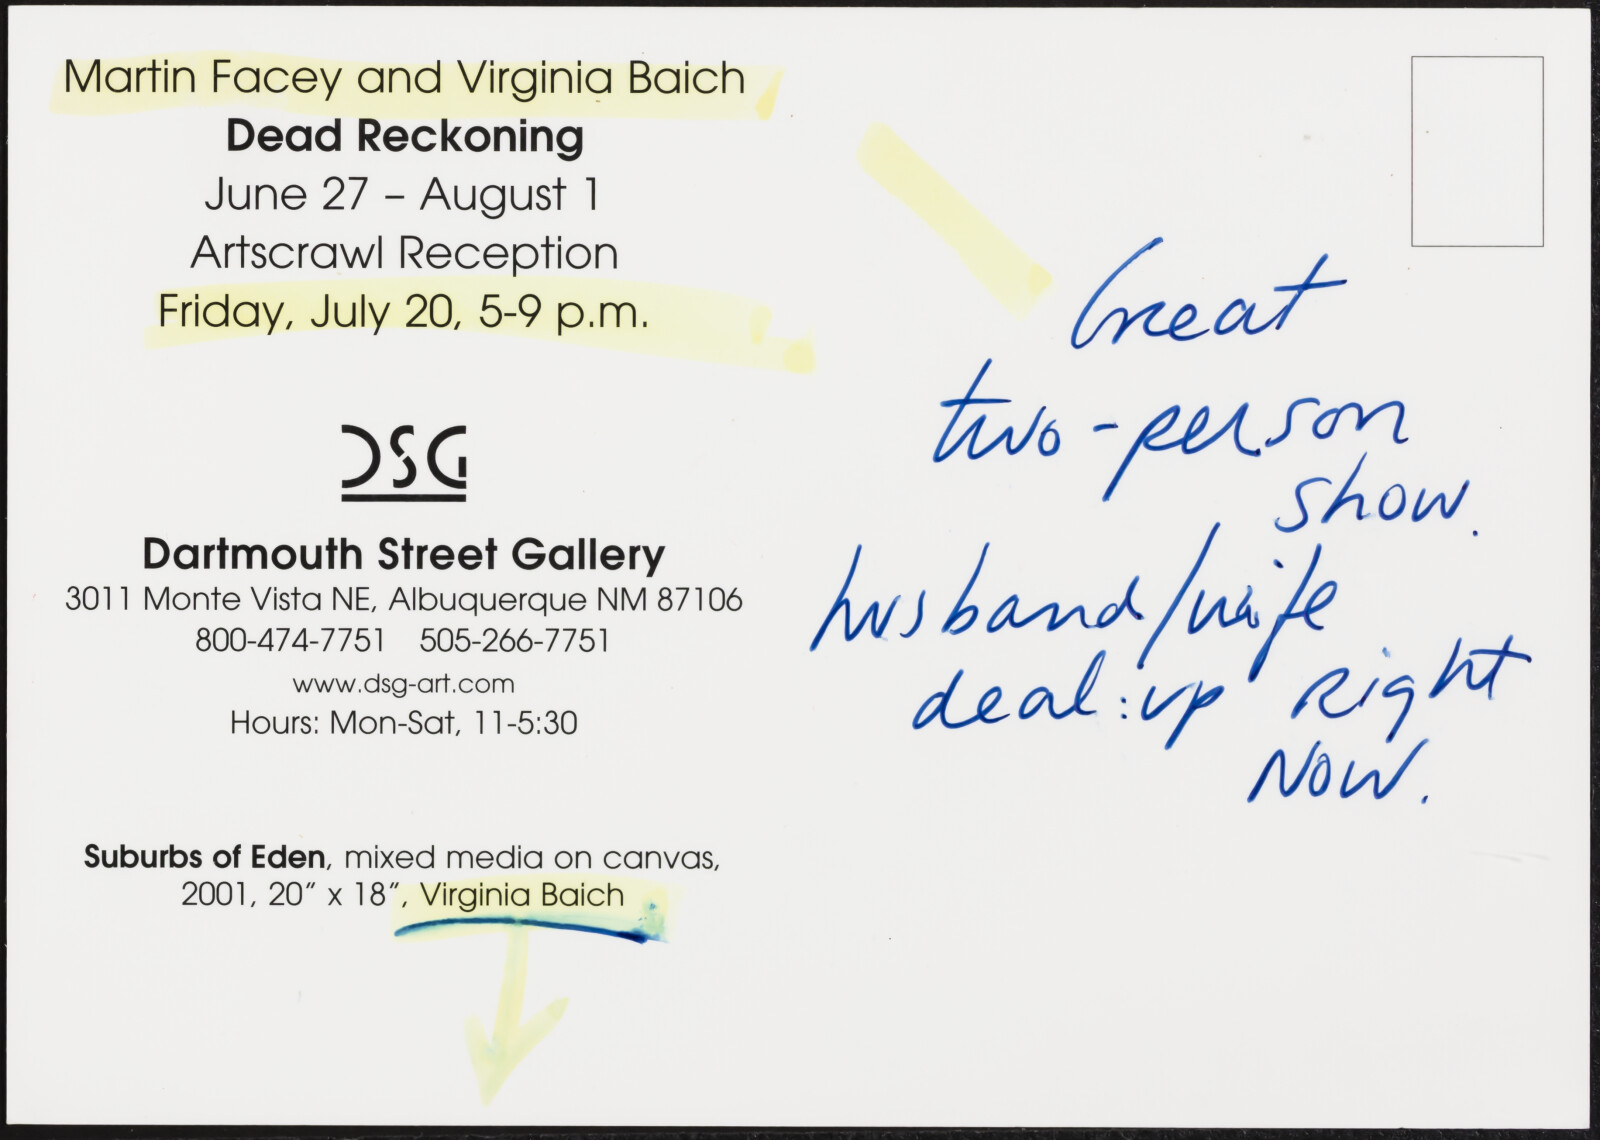 Martin Facey and Virginia Baich
Dead Reckoning
June 27 – August 1
Artscrawl Reception
Friday, July 20, 5-9 p.m.
DSG
Dartmouth Street Gallery
3011 Monte Vista NE, Albuquerque NM 87106
800-474-7751 505-266-7751
www.dsg-art.com
Hours: Mon-Sat, 11-5:30
Suburbs of Eden, mixed media on canvas,
2001, 20" x 18", Virginia Baich
Great
two-person
show.
husband/wife
deal: up right
now.